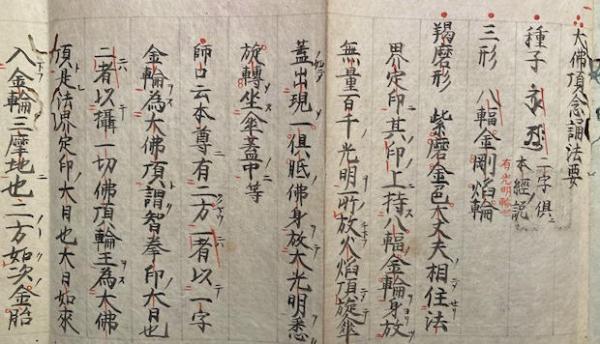 大佛頂念誦法要
種子 二字俱本經説
三形 八輻金剛焰輪 有光明輪
羯磨形 紫磨金色大丈夫相住法
界定印其印上持八輻金輪身放
無量百千光明所放火焰頂旋傘
蓋出現一俱胝佛身放大光明悉
旋轉坐傘蓋中等
師口云本尊有二方一者以一字
金輪為大佛頂謂智拳印大日也
二者以攝一切佛頂輪王為大佛
頂是法界定印大日也大日如來
入金輪三摩地也二方如次金胎